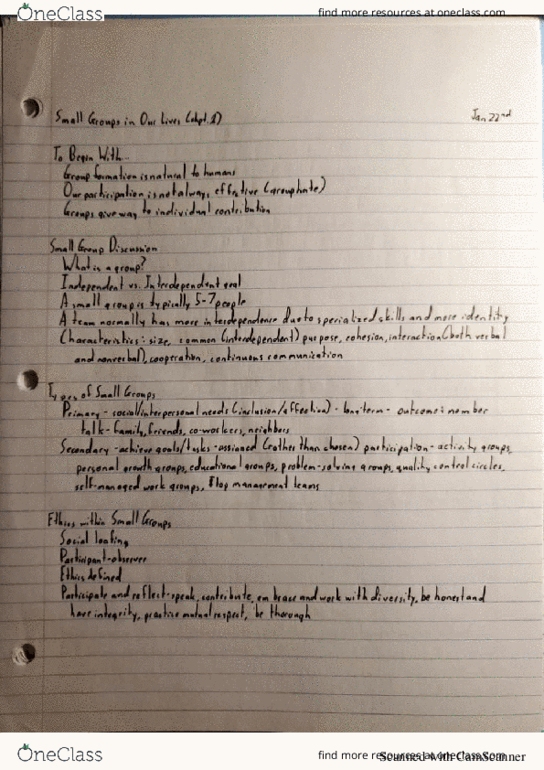 OneClass
find more resources at oneclass.com
Small Groups in Our Lives (chpt. 1)
Jan 22nd
To Begin With...
Group formation is natural to humans
Our participation is not always effective (grouphate)
Groups give way to individual contribution
Small Group Discussion
What is a group?
Independent vs. Interdependent goal
A small group is typically 5-7 people
A team normally has more interdependence due to specialized skills and more identity
Characteristics: size, common (interdependent) purpose, cohesion, interaction (both verbal
and nonverbal), cooperation, continuous communication
Types of Small Groups
Primary - social/interpersonal needs (inclusion/affection) - longterm - outcome: member
talk - family, friends, co-workers, neighbors
Secondary - achieve goals/tasks - assigned (rather than chosen) participation - activity groups,
personal growth groups, educational groups, problem-solving groups, quality control circles,
self-managed work groups, top management teams
Ethics within Small Groups
Social loafing
Participant-observer
Ethics defined
Participate and reflect - speak, contribute, embrace and work with diversity, be honest and
have integrity, practice mutual respect, be thorough
OneClass
find more resources at oneclass.com
Scanned with CamScanner